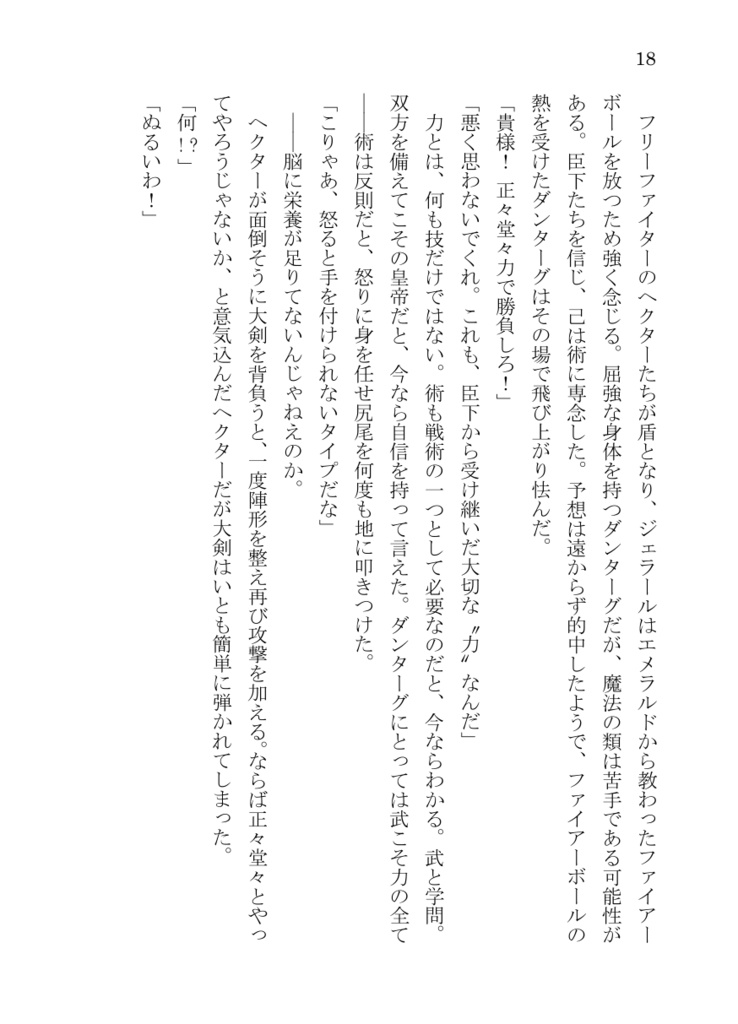 18
　フリーファイターのヘクターたちが盾となり、ジェラールはエメラルドから教わったファイアー
ボールを放つため強く念じる。屈強な身体を持つダンターグだが、魔法の類は苦手である可能性が
ある。臣下たちを信じ、己は術に専念した。予想は遠からず的中したようで、ファイアーボールの
熱を受けたダンターグはその場で飛び上がり怯んだ。
「貴様！　正々堂々力で勝負しろ！」
「悪く思わないでくれ。これも、臣下から受け継いだ大切な〝力〟なんだ」
　力とは、何も技だけではない。術も戦術の一つとして必要なのだと、今ならわかる。武と学問。
双方を備えてこその皇帝だと、今なら自信を持って言えた。ダンターグにとっては武こそ力の全て
――術は反則だと、怒りに身を任せ尻尾を何度も地に叩きつけた。
「こりゃあ、怒ると手を付けられないタイプだな」
　――脳に栄養が足りてないんじゃねえのか。
　ヘクターが面倒そうに大剣を背負うと、一度陣形を整え再び攻撃を加える。ならば正々堂々とやっ
てやろうじゃないか、と意気込んだヘクターだが大剣はいとも簡単に弾かれてしまった。
「何!?」
「ぬるいわ！」